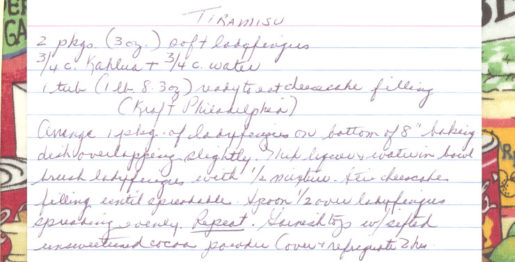 TIRAMISU
2 pkgs. (3 oz.) soft ladyfingers
3/4 c. Kahlua + 3/4 c. water
1 tub (1 lb. 8.3 oz) ready to eat cheesecake filling
(Kraft Philadelphia)
Arrange 1 pkg. of ladyfingers on bottom of 8" baking
dish overlapping slightly. Mix liqueur & water in bowl
brush ladyfingers with 1/2 mixture. Stir cheesecake
filling until spreadable. Spoon 1/2 over ladyfingers
spreading evenly. Repeat. Garnish top w/ sifted
unsweetened cocoa powder Cover + refrigerate 2 hrs.